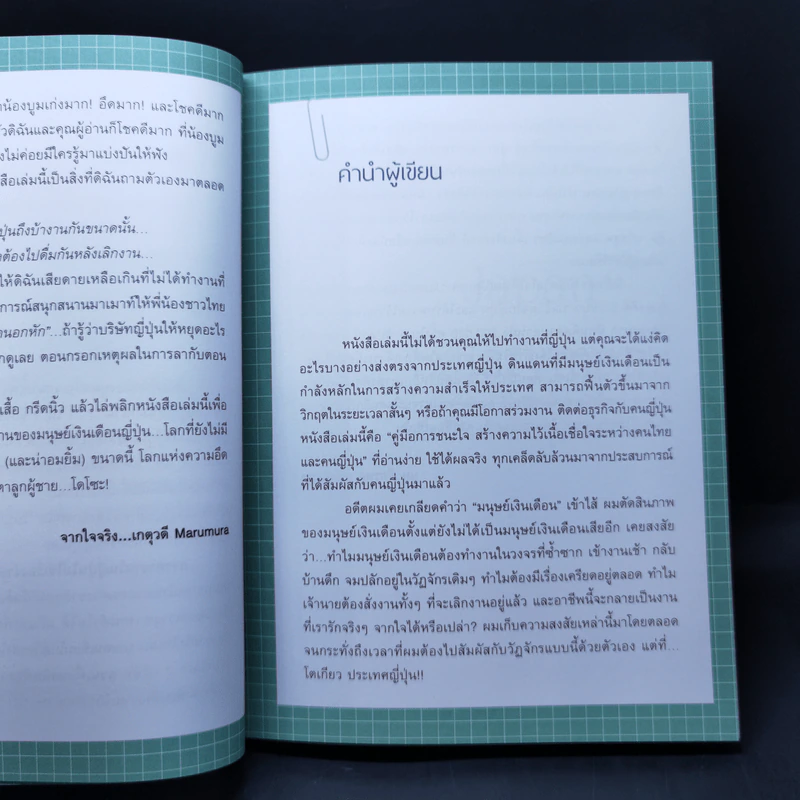 น้องบูมเก่งมาก! อึดมาก! และโชคดีมาก
ัวดิฉันและคุณผู้อ่านก็โชคดีมาก ที่น้องบูม
งไม่ค่อยมีใครรู้มาแบ่งปันให้ฟัง
สือเล่มนี้เป็นสิ่งที่ดิฉันถามตัวเองมาตลอด
ปุ่นถึงบ้างานกันขนาดนั้น...
ต้องไปดื่มกันหลังเลิกงาน...
ให้ดิฉันเสียดายเหลือเกินที่ไม่ได้ทำงานที่
การณ์สนุกสนานมาเมาท์ให้พี่น้องชาวไทย
านอกหัก”...ถ้ารู้ว่าบริษัทญี่ปุ่นให้หยุดอะไร
กดูเลย ตอนกรอกเหตุผลในการลากับตอน
เสื้อ กรีดนิ้ว แล้วไล่พลิกหนังสือเล่มนี้เพื่อ
านของมนุษย์เงินเดือนญี่ปุ่น...โลกที่ยังไม่มี
(และน่าอมยิ้ม) ขนาดนี้ โลกแห่งความอึด
ตาลูกผู้ชาย...โดโซะ!
จากใจจริง...เกตุวดี Marumura
คำนำผู้เขียน
หนังสือเล่มนี้ไม่ได้ชวนคุณให้ไปทำงานที่ญี่ปุ่น แต่คุณจะได้แง่คิด
อะไรบางอย่างส่งตรงจากประเทศญี่ปุ่น ดินแดนที่มีมนุษย์เงินเดือนเป็น
กำลังหลักในการสร้างความสำเร็จให้ประเทศ สามารถฟื้นตัวขึ้นมาจาก
วิกฤตในระยะเวลาสั้นๆ หรือถ้าคุณมีโอกาสร่วมงาน ติดต่อธุรกิจกับคนญี่ปุ่น
หนังสือเล่มนี้คือ “คู่มือการชนะใจ สร้างความไว้เนื้อเชื่อใจระหว่างคนไทย
และคนญี่ปุ่น” ที่อ่านง่าย ใช้ได้ผลจริง ทุกเคล็ดลับล้วนมาจากประสบการณ์
ที่ได้สัมผัสกับคนญี่ปุ่นมาแล้ว
อดีตผมเคยเกลียดคำว่า “มนุษย์เงินเดือน” เข้าไส้ ผมตัดสินภาพ
ของมนุษย์เงินเดือนตั้งแต่ยังไม่ได้เป็นมนุษย์เงินเดือนเสียอีก เคยสงสัย
ว่า...ทำไมมนุษย์เงินเดือนต้องทำงานในวงจรที่ซ้ำซาก เข้างานเช้า กลับ
บ้านดึก จมปลักอยู่ในวัฏจักรเดิมๆ ทำไมต้องมีเรื่องเครียดอยู่ตลอด ทำไม
เจ้านายต้องสั่งงานทั้งๆ ที่จะเลิกงานอยู่แล้ว และอาชีพนี้จะกลายเป็นงาน
ที่เรารักจริงๆ จากใจได้หรือเปล่า? ผมเก็บความสงสัยเหล่านี้มาโดยตลอด
จนกระทั่งถึงเวลาที่ผมต้องไปสัมผัสกับวัฏจักรแบบนี้ด้วยตัวเอง แต่ที่...
โตเกียว ประเทศญี่ปุ่น!!